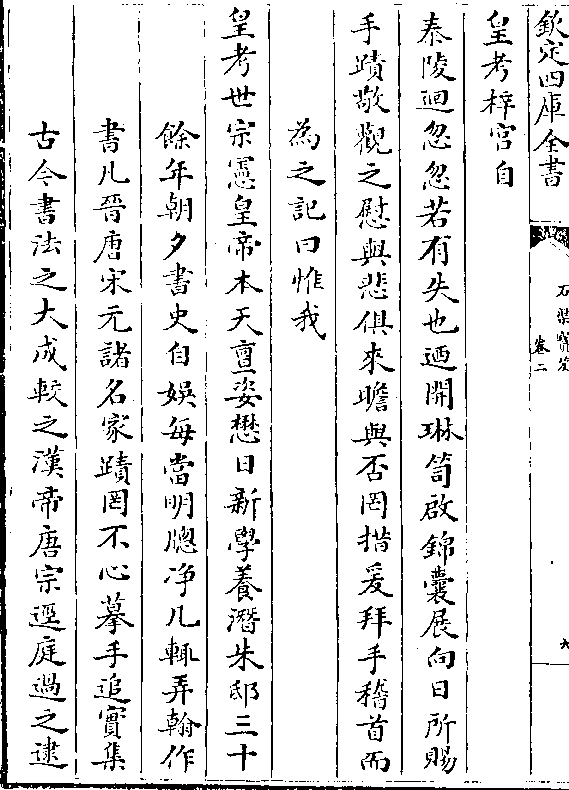 欽定四庫全書
石渠寶笈
卷二
六
皇考梓宮自
泰陵迴忽忽若有失也迺開琳笥啟錦囊展向日所賜
手蹟敬觀之慰與悲俱來瞻與否罔措爰拜手稽首而
為之記曰惟我
皇考世宗憲皇帝本天亶姿懋日新學養潛朱邸三十
餘年朝夕書史自娛每當明牕净几輒弄翰作
書凡晉唐宋元諸名家蹟罔不心摹手追實集
古今書法之大成較之漢帝唐宗逕庭過之逮